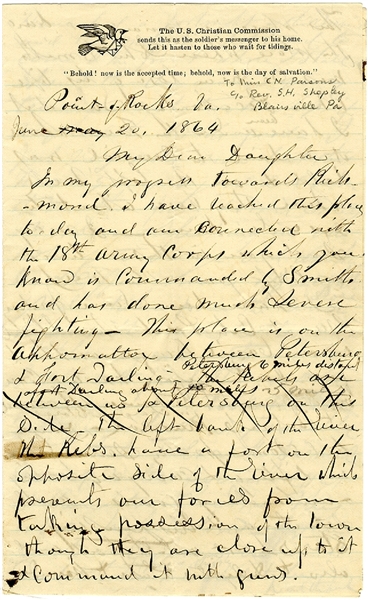 The U. S. Christian Commission
sends this as the soldier's messenger to his home.
Let it hasten to those who wait for tidings.
"Behold! now is the accepted time; behold, now is the day of salvation."
To Miss C N. Parsons
c/o Rev. S.H. Shepley
Blairsville Pa
Point of Rocks Va.
June May 20, 1864
My Dear Daughter
In my progress towards Rich-
-mond. I have reached this place
to day and am connected with
the 18th Army Corps which you
know is commanded by Smith
and has done much severe
fighting - This place is on the
Appomattox between Petersburg
Petersburg 6 miles distant
& Fort Darling. The Rebels are
& Fort Darling about 10 miles
between us & Petersburg on this
Side - The left bank of the river
the Rebs. have a fort on the
opposite side of the river which
prevents our forces from
taking possession of the town
though they are close up to it
& command it with guns.